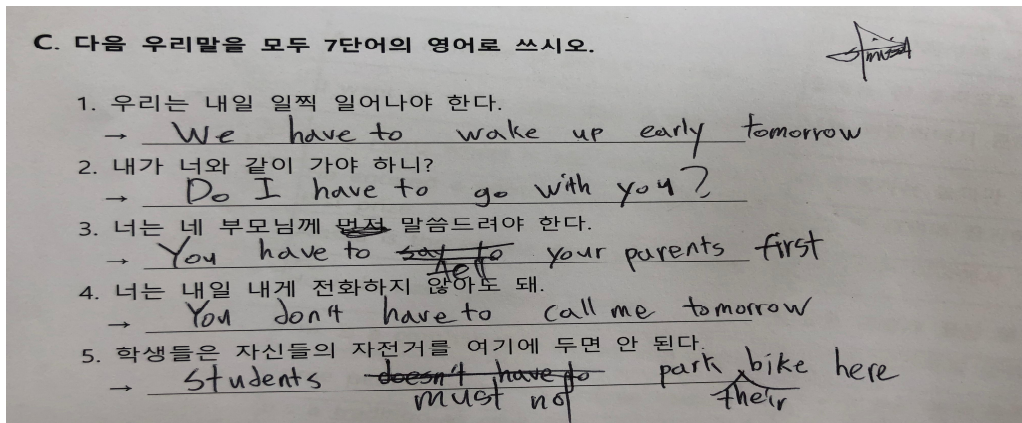 C. 다음 우리말을 모두 7단어의 영어로 쓰시오.
1. 우리는 내일 일찍 일어나야 한다.
→ We have to wake up early tomorrow
2. 내가 너와 같이 가야 하니?
→ Do I have to go with you?
3. 너는 네 부모님께 먼저 말씀드려야 한다.
→ You have to say to your parents first
tell
4. 너는 내일 내게 전화하지 않아도 돼.
→ You don't have to call me tomorrow
5. 학생들은 자신들의 자전거를 여기에 두면 안 된다.
→ students doesn't have to park bike here
must not their